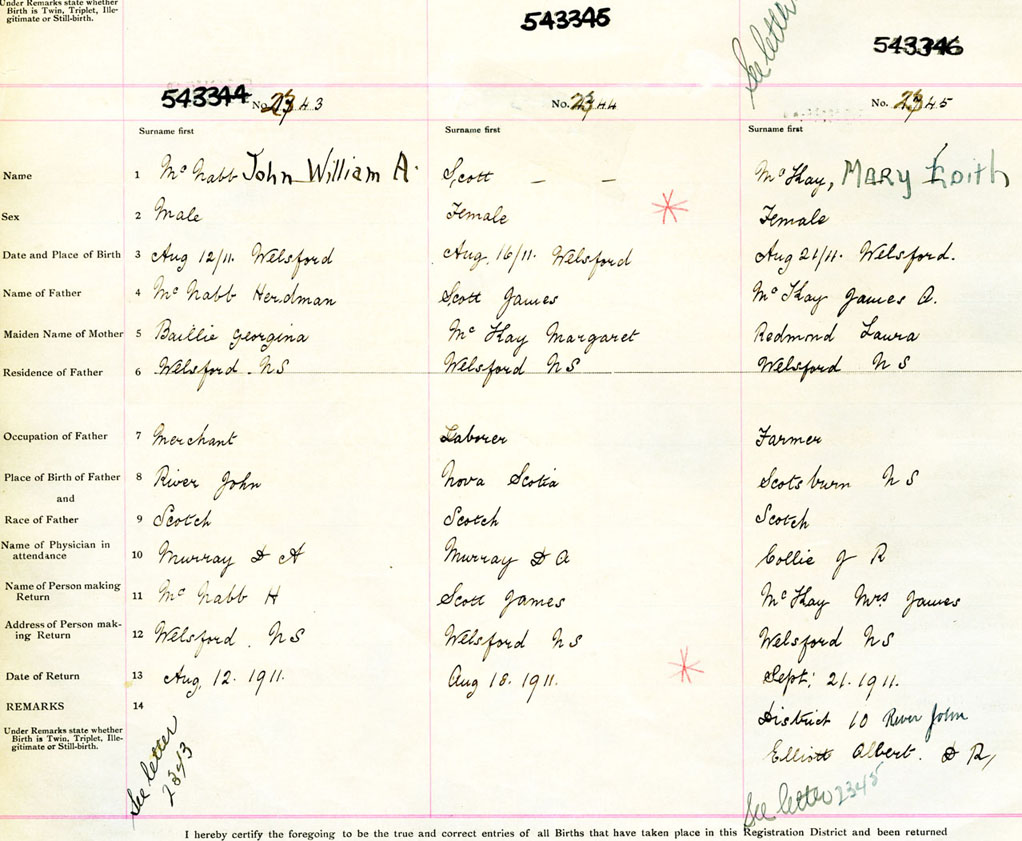 Under Remarks state whether
Birth is Twin, Triplet, Ille-
gitimate or Still-birth.
543345
See letter
543346
543344 No. 2343
No. 2344
No. 2345
Surname first Surname first Surname first
Name 1 McNabb John William A. Scott — — McKay, MARY EDITH
Sex 2 Male Female Female
Date and Place of Birth 3 Aug 12/11. Welsford Aug. 16/11. Welsford Aug 21/11. Welsford.
Name of Father 4 McNabb Herdman Scott James McKay James A.
Maiden Name of Mother 5 Baillie Georgina McKay Margaret Redmond Laura
Residence of Father 6 Welsford. NS Welsford NS Welsford NS
Occupation of Father 7 Merchant Laborer Farmer
Place of Birth of Father 8 River John Nova Scotia Scotsburn NS
and
Race of Father 9 Scotch Scotch Scotch
Name of Physician in
attendance 10 Murray D A Murray D A Collie J R
Name of Person making
Return 11 McNabb H Scott James McKay Mrs James
Address of Person mak-
ing Return 12 Welsford. NS Welsford NS Welsford NS
Date of Return 13 Aug. 12. 1911. Aug 18. 1911. Sept. 21. 1911.
REMARKS 14 District 10 River John
Under Remarks state whether
Birth is Twin, Triplet, Ille-
gitimate or Still-birth.
Elliott Albert. D R,
See letter
2343
See letter 2345
I hereby certify the foregoing to be the true and correct entries of all Births that have taken place in this Registration District and been returned